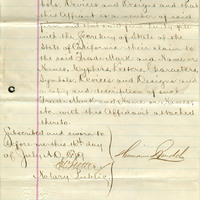 bols, Devices and Designs and that
this Affiant is a member of said
firm and
with the Secretary of State of the
State of California their claim to
the said Trade Mark and Names or
Names, Cyphers, Letters, Characters,
Symbols, Devices and Designs
a copy and description of such
Trade Mark and Name or Names
etc. with this Affidavit attached
thereto.
Subscribed and sworn to
before me this day
of July A.D.
Notary Public